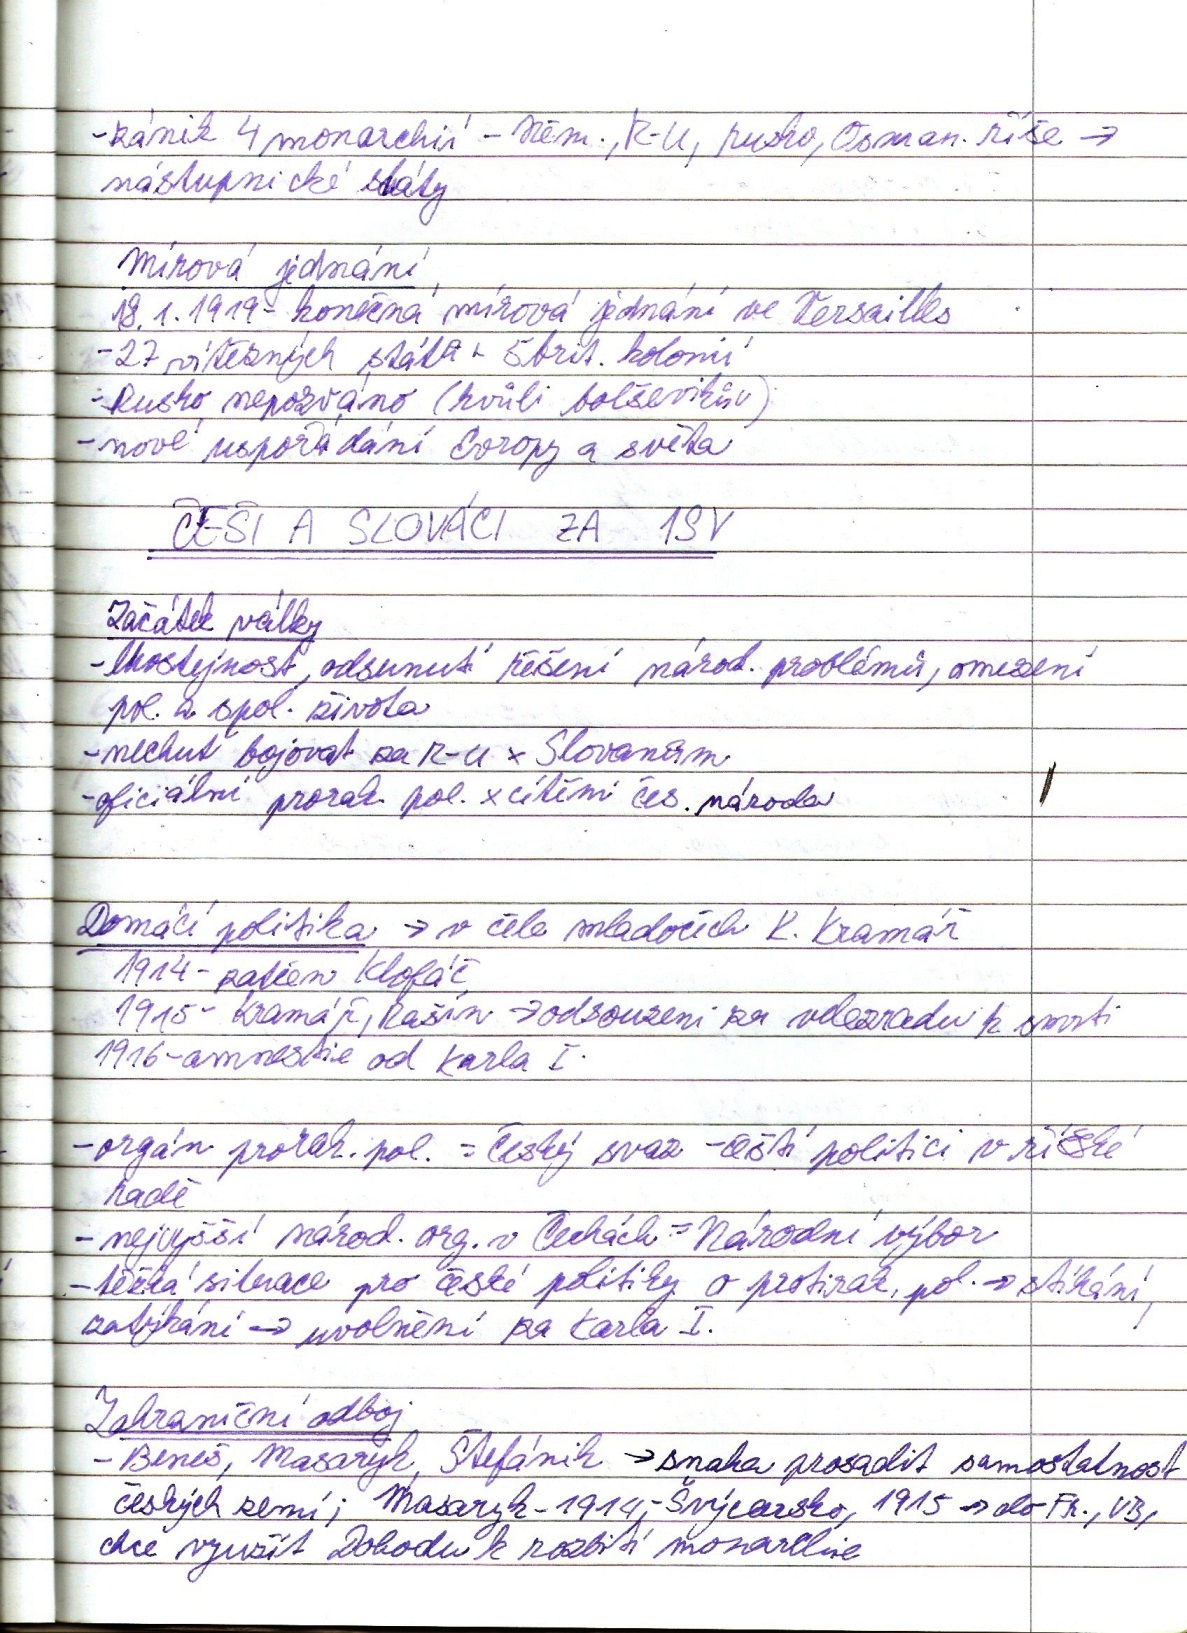 - zánik 4 monarchií - Něm., R-U, Rusko, Osman. říše →
nástupnické státy
Mírová jednání
18.1.1919 - konečná mírová jednání ve Versailles
- 27 vítězných států + 5 brit. kolonií
- Rusko nepozváno (kvůli bolševikům)
- nové uspořádání Evropy a světa
ČEŠI A SLOVÁCI ZA 1SV
Začátek války
- lhostejnost, odsunutí řešení národ. problémů, omezení
pol. a spol. života
- nechuť bojovat za R-U x Slovanům
- oficiální prorak. pol. x cítění čes. národa
Domácí politika → v čele mladočech K. Kramář
1914 - zatčen Klofáč
1915 - Kramář, Rašín → odsouzeni za vlezradu k smrti
1916 - amnestie od Karla I.
- orgán prorak. pol. = Český svaz - čeští politici v říšské
radě
- nejvyšší národ. org. v Čechách = Národní výbor
- těžká situace pro české politiky o protirak. pol. → stíhání,
zatýkání → uvolnění za Karla I.
Zahraniční odboj
- Beneš, Masaryk, Štefánik → snaha prosadit samostatnost
českých zemí; Masaryk - 1914 - Švýcarsko, 1915 → do Fr., VB,
chce využít Dohodu k rozbití monarchie